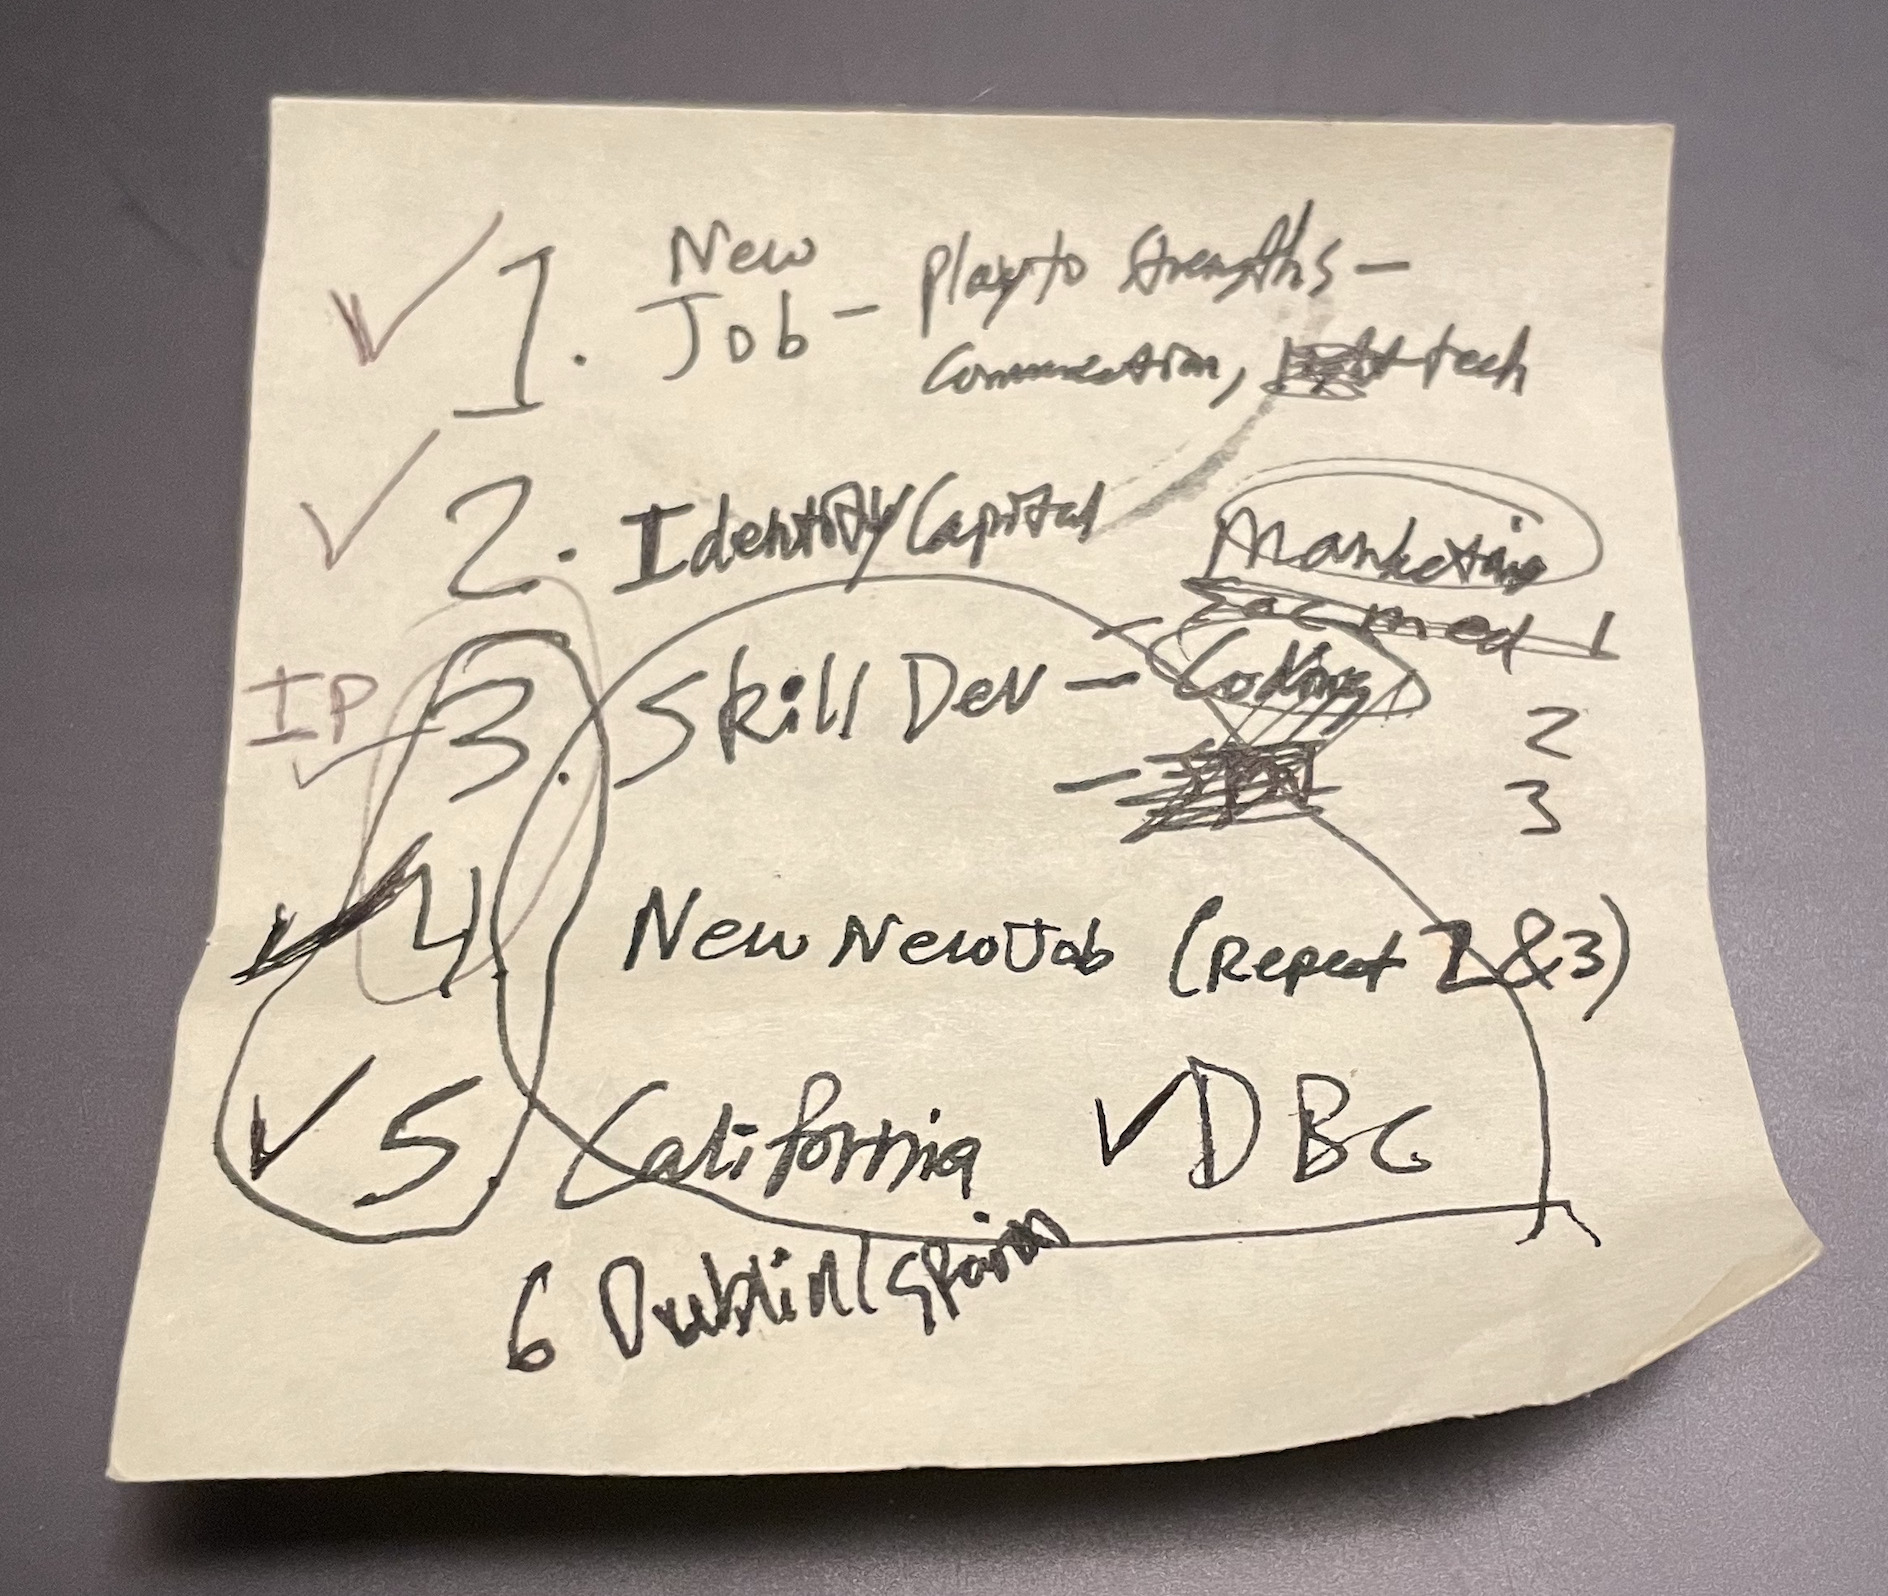 ✓ 1. New Job - Play to Strengths -
Communication, tech
✓ 2. Identity Capital
Marketing
Soc Med 1
IP ✓ 3. Skill Dev - Coding
2
-
3
✓ 4 New New Job (Repeat 2 & 3)
✓ 5 California ✓ DBC
6 Dublin/Spain